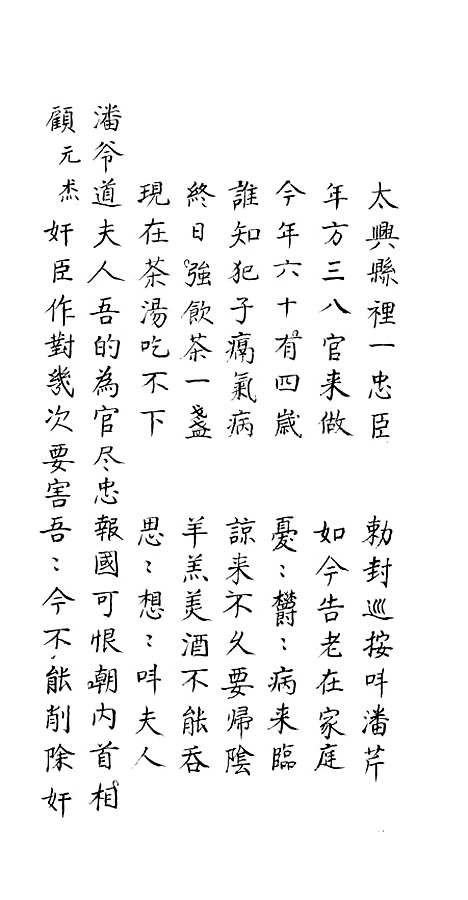 太興縣裡一忠臣　勅封巡按呌潘芹
年方三八官来做　如今告老在家庭
今年六十有四歲　憂〻欝〻病来臨
誰知犯子癘氣病　諒来不久要帰陰
終日強飲茶一盞　羊羔美酒不能吞
現在茶湯吃不下　思〻想〻呌夫人
潘爷道夫人吾的為官尽忠報國可恨朝内首相
顧元杰奸臣作對幾次要害吾〻今不能削除奸